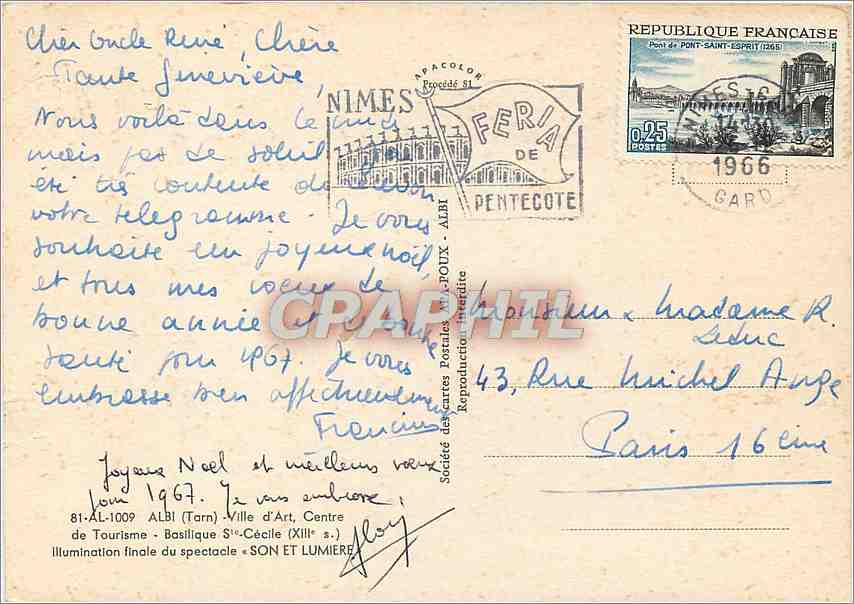 Cher Oncle René, Chère
Tante Geneviève,
Nous voilà dans le midi
mais pas de soleil. J'ai
été très contente de recevoir
votre telegramme. Je vous
souhaite un joyeux noël,
et tous mes voeux de
bonne année et bonne
santé pour 1967. Je vous
embrasse bien affectueusement
Joyeux Noël et meilleurs voeux
pour 1967. Je vous embrasse,
81-AL-1009 ALBI (Tarn) - Ville d'Art, Centre
de Tourisme - Basilique Ste-Cécile (XIIIe s.)
Illumination finale du spectacle « SON ET LUMIERE
APACOLOR
Procédé 81
NIMES
FERIA
DE
PENTECOTE
REPUBLIQUE FRANÇAISE
Pont de PONT-SAINT-ESPRIT (1265)
0,25
POSTES
NIMES
1966
GARD
Société des cartes Postales APA-POUX - ALBI
Reproduction interdite
CPAPHIL
Monsieur & Madame R.
Leduc
43, Rue Michel Ange
Paris 16ème